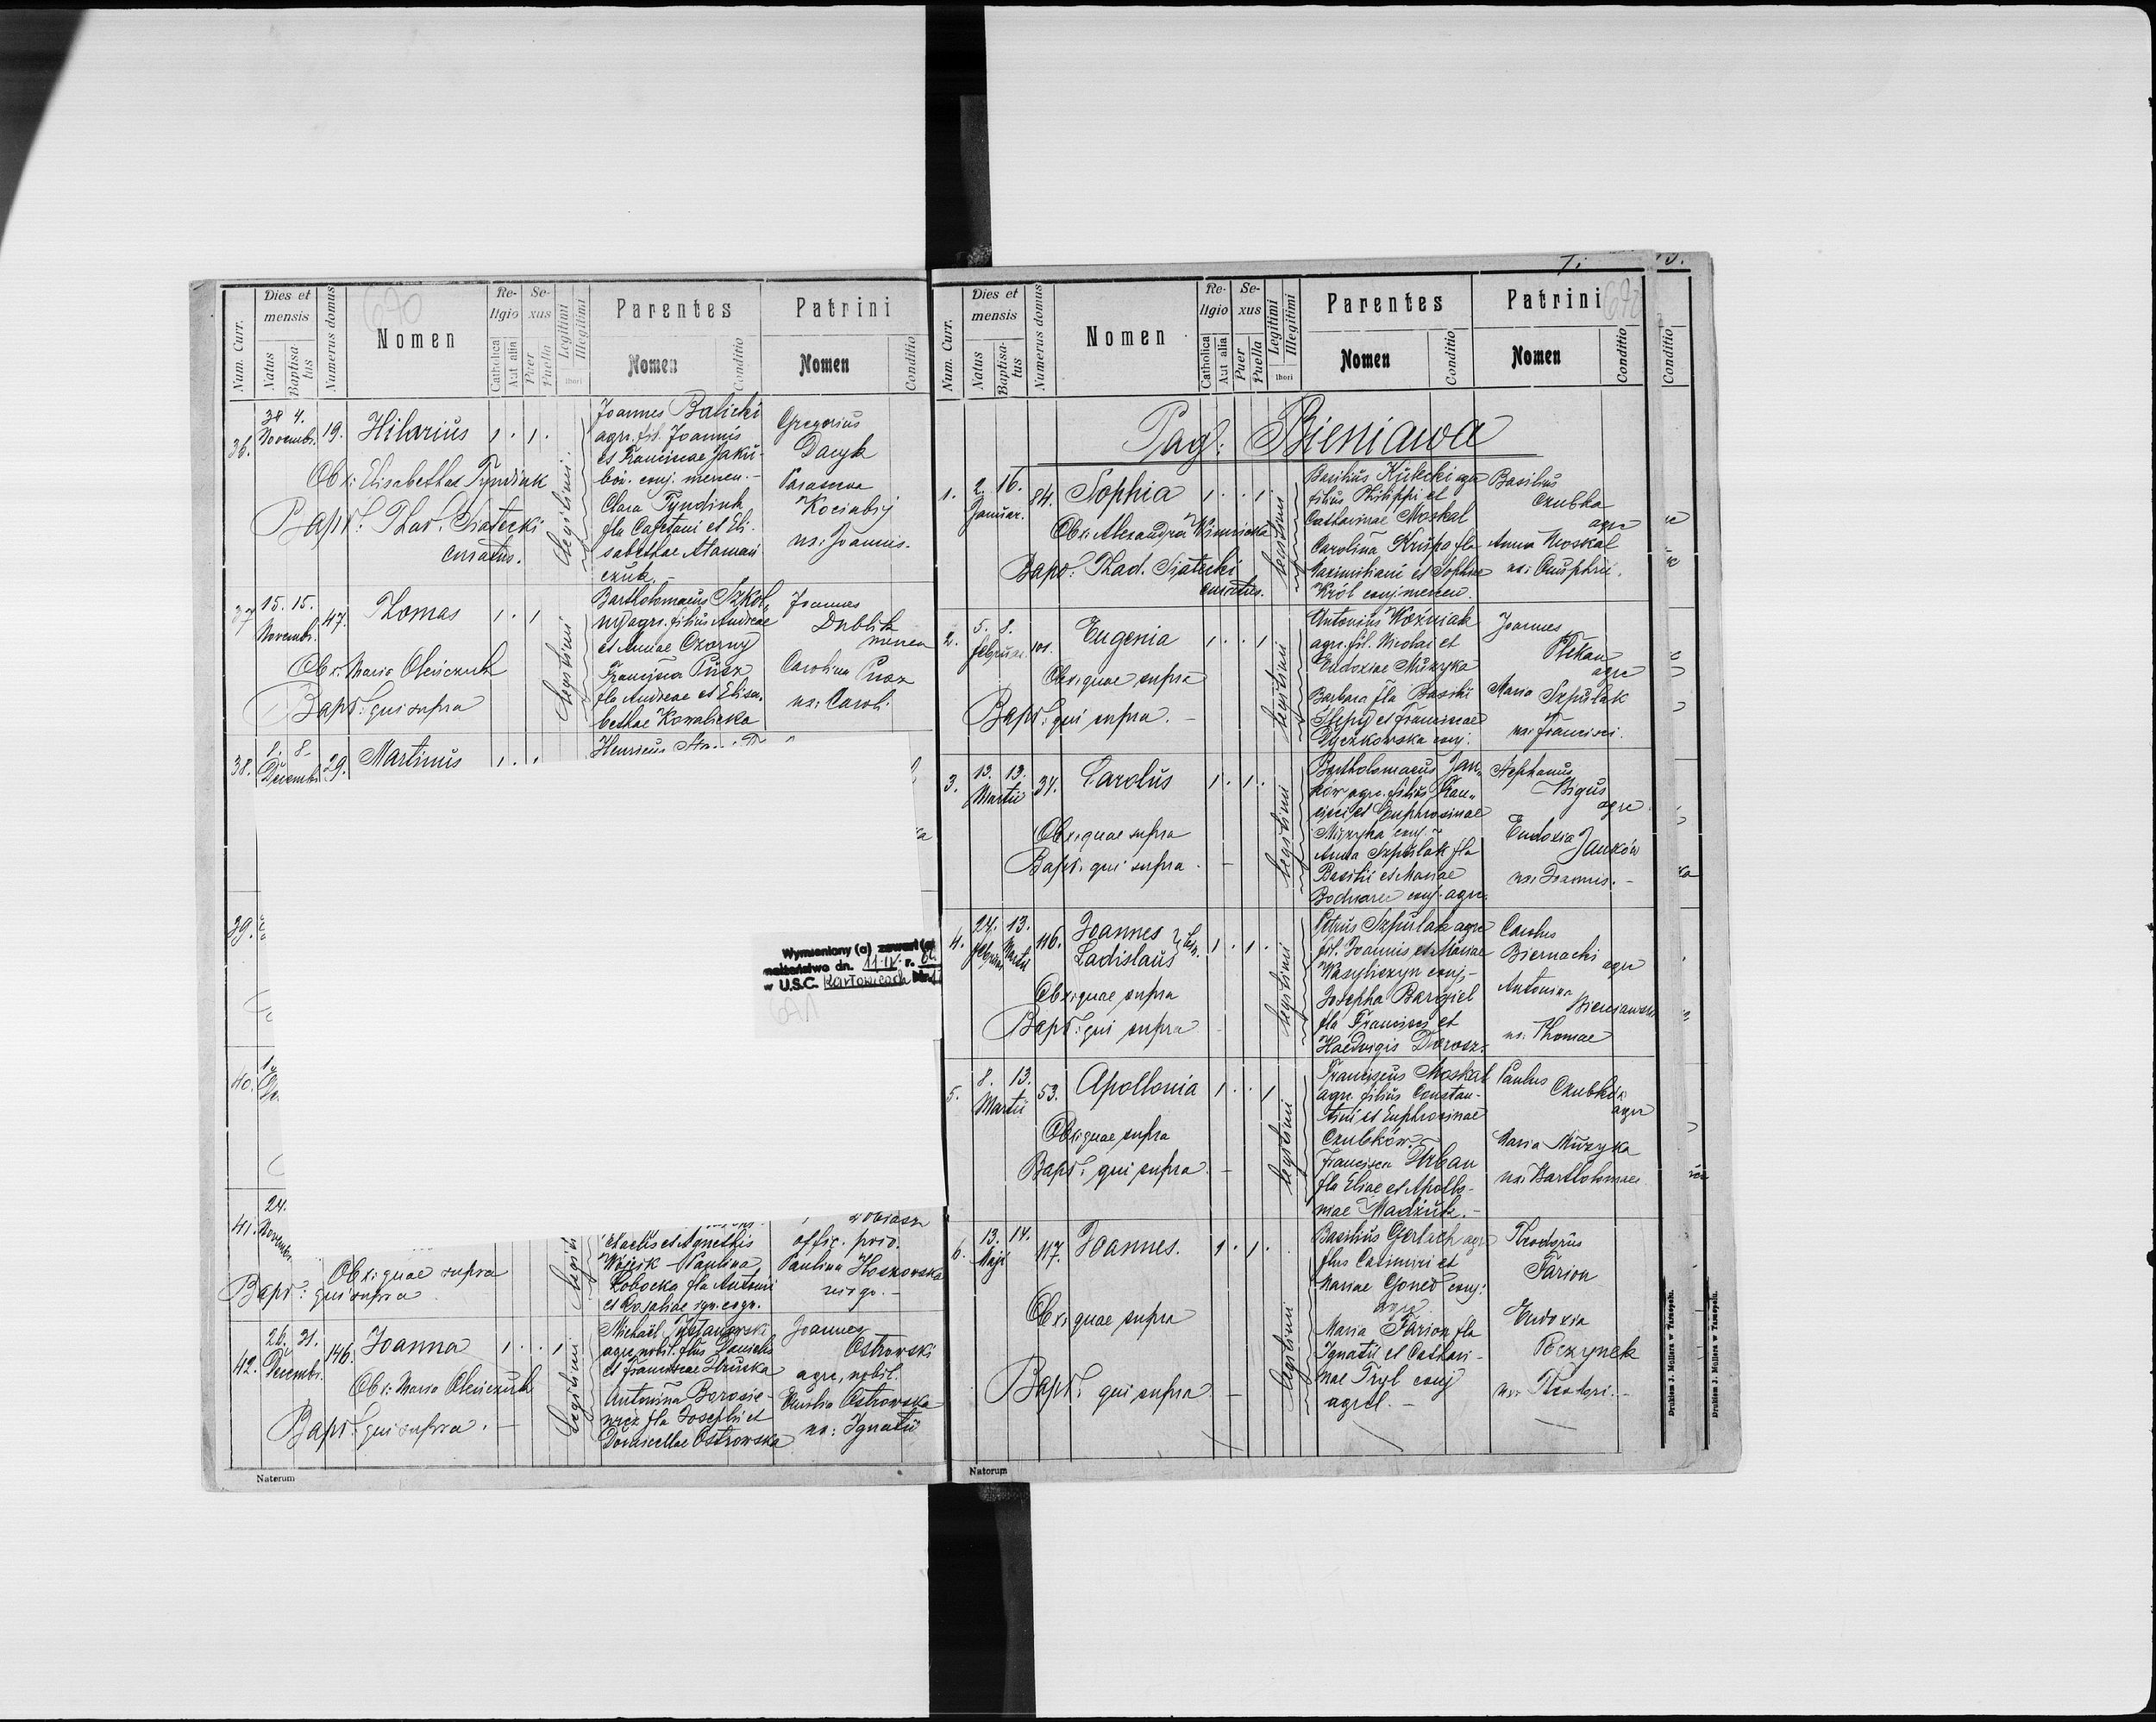 670
Num. Curr.
Dies et mensis
Natus
Baptisatus
Numerus domus
Nomen
Religio
Catholica
Aut alia
Sexus
Puer
Puella
Legitimi
Illegitimi
thori
Parentes
Nomen
Conditio
Patrini
Nomen
Conditio
36.
4.
Novembr.
19.
Hilarius
1.
1.
Obx: Elisabethae Tyndiuk
Bapt. Thad. Siatecki
curatus.
Legitimi
Joannes Balicki
agr. fil. Joannis
et Franciscae Jaku-
bów. conj. mercen. -
Clara Tyndiuk
fla Cajetani et Eli-
sabethae Ataman
czuk. -
Gregorius
Dacyk
Parasceva
Kociubij
ux: Joannis.
37
15. 15.
Novembr.
47.
Thomas
1.
1
Obx: Maria Oleńczuk
Bapt: qui supra
Legitimi
Bartholomaeus Szkol,
ny agr. filius Andreae
et Annae Czorny
Francisca Pusz
fla Andreae et Elisa,
bethae Kowalicka
Joannes
Dublik
mercen
Carolina Pusz
ux: Caroli
38.
8.
Decembr.
29.
Martinus
1.
Henricus
39.
Wymieniony (a) zawarł (a)
małżeństwo dn. 11.IV. r.
w U.S.C. Katowicach
671
40.
41.
24.
Novembr.
Obx: quae supra
Bapt: qui supra
et Agnethis
Wójcik - Paulina
Łobocka fla Antonii
et Rosaliae
offic. priv.
Paulina Hoszowska
virgo. -
42.
26. 31.
Decembr.
146.
Joanna
1.
1
Obx: Maria Oleńczuk
Bapt. qui supra. -
Legitimi
Michaël
agr. nobil. flus Danielis
et Franciscae Hruszka
Antonina Borosie-
wicz fla Josephi et
Domicellae Ostrowska
Joannes
Ostrowski
agr., nobil.
Ostrowska
ux: Ignatii
Natorum
Num. Curr.
Dies et mensis
Natus
Baptisatus
Numerus domus
Nomen
Religio
Catholica
Aut alia
Sexus
Puer
Puella
Legitimi
Illegitimi
thori
Parentes
Nomen
Conditio
Patrini
Nomen
Conditio
Conditio
Pag: Bieniawa
1.
2. 16.
Januar.
84.
Sophia
1.
1
Obx: Alexandra Winnicka
Bapt: Thad. Siatecki
curatus.
Legitimi
Basilius Kulecki agr
filius Philippi et
Catharinae Moskal
Carolina Krupa fla
Maximiliani et Sophiae
Król conj mercen.
Basilius
Czubka
agr
Anna Moskal
ux: Onuphrii.
2.
5. 8.
Februar.
101.
Eugenia
1.
1
Obx: quae supra
Bapt: qui supra. -
Legitimi
Antonius Woźniak
agr. fil. Nicolai et
Eudoxiae Muzyka
Barbara fla Basilii
Slepy et Franciscae
Byczkowska conj.
Joannes
Plekan
agr
Maria Szpulak
ux: Francisci.
3.
13. 13.
Martii
37.
Carolus
1.
1.
Obx: quae supra
Bapt. qui supra. -
Legitimi
Bartholomaeus Jan,
ków agr. filius Fran,,
cisci et Euphrosinae
Muzyka conj
Anna Szpulak fla
Basilii et Mariae
Bodnarec conj. agr.
Stephanus
Bigus
agr.
Eudoxia Janków
ux: Joannis. -
4.
24. 13.
Februar Martii
116.
Joannes
Ladislaus
1.
1.
Obx: quae supra
Bapt: qui supra -
Legitimi
Petrus Szpulak agr
fil. Joannis et Mariae
Wasyliszyn conj. -
Josepha Bargiel
fla Francisci et
Haedvigis Dorosz.
Carolus
Biernacki
agr
Antonina
Bieniawski
ux: Thomae
5.
8. 13.
Martii
53.
Apollonia
1.
1
Obx: quae supra
Bapt. qui supra. -
Legitimi
Franciscus Moskal
agr. filius Constan-
tini et Euphrosinae
Czubków.
Francisca Urban
fla Eliae et Apollo-
niae Madziuk. -
Paulus Czubków
agr
Maria Muzyka
ux: Bartholomaei
6.
13. 14.
Maji
117.
Joannes.
1.
1.
Obx: quae supra
Bapt. qui supra -
Legitimi
Basilius Gerlach agr
flus Casimiri et
Mariae Goned conj:
agr.
Maria Farion fla
Ignatii et Cathari-
nae Tryl conj
agrcl. -
Theodorus
Farion
Eudoxia
Boczynek
ux: Theodori. -
Drukiem J. Möllera w Tarnopolu.
Drukiem J. Möllera w Tarnopolu.
Natorum